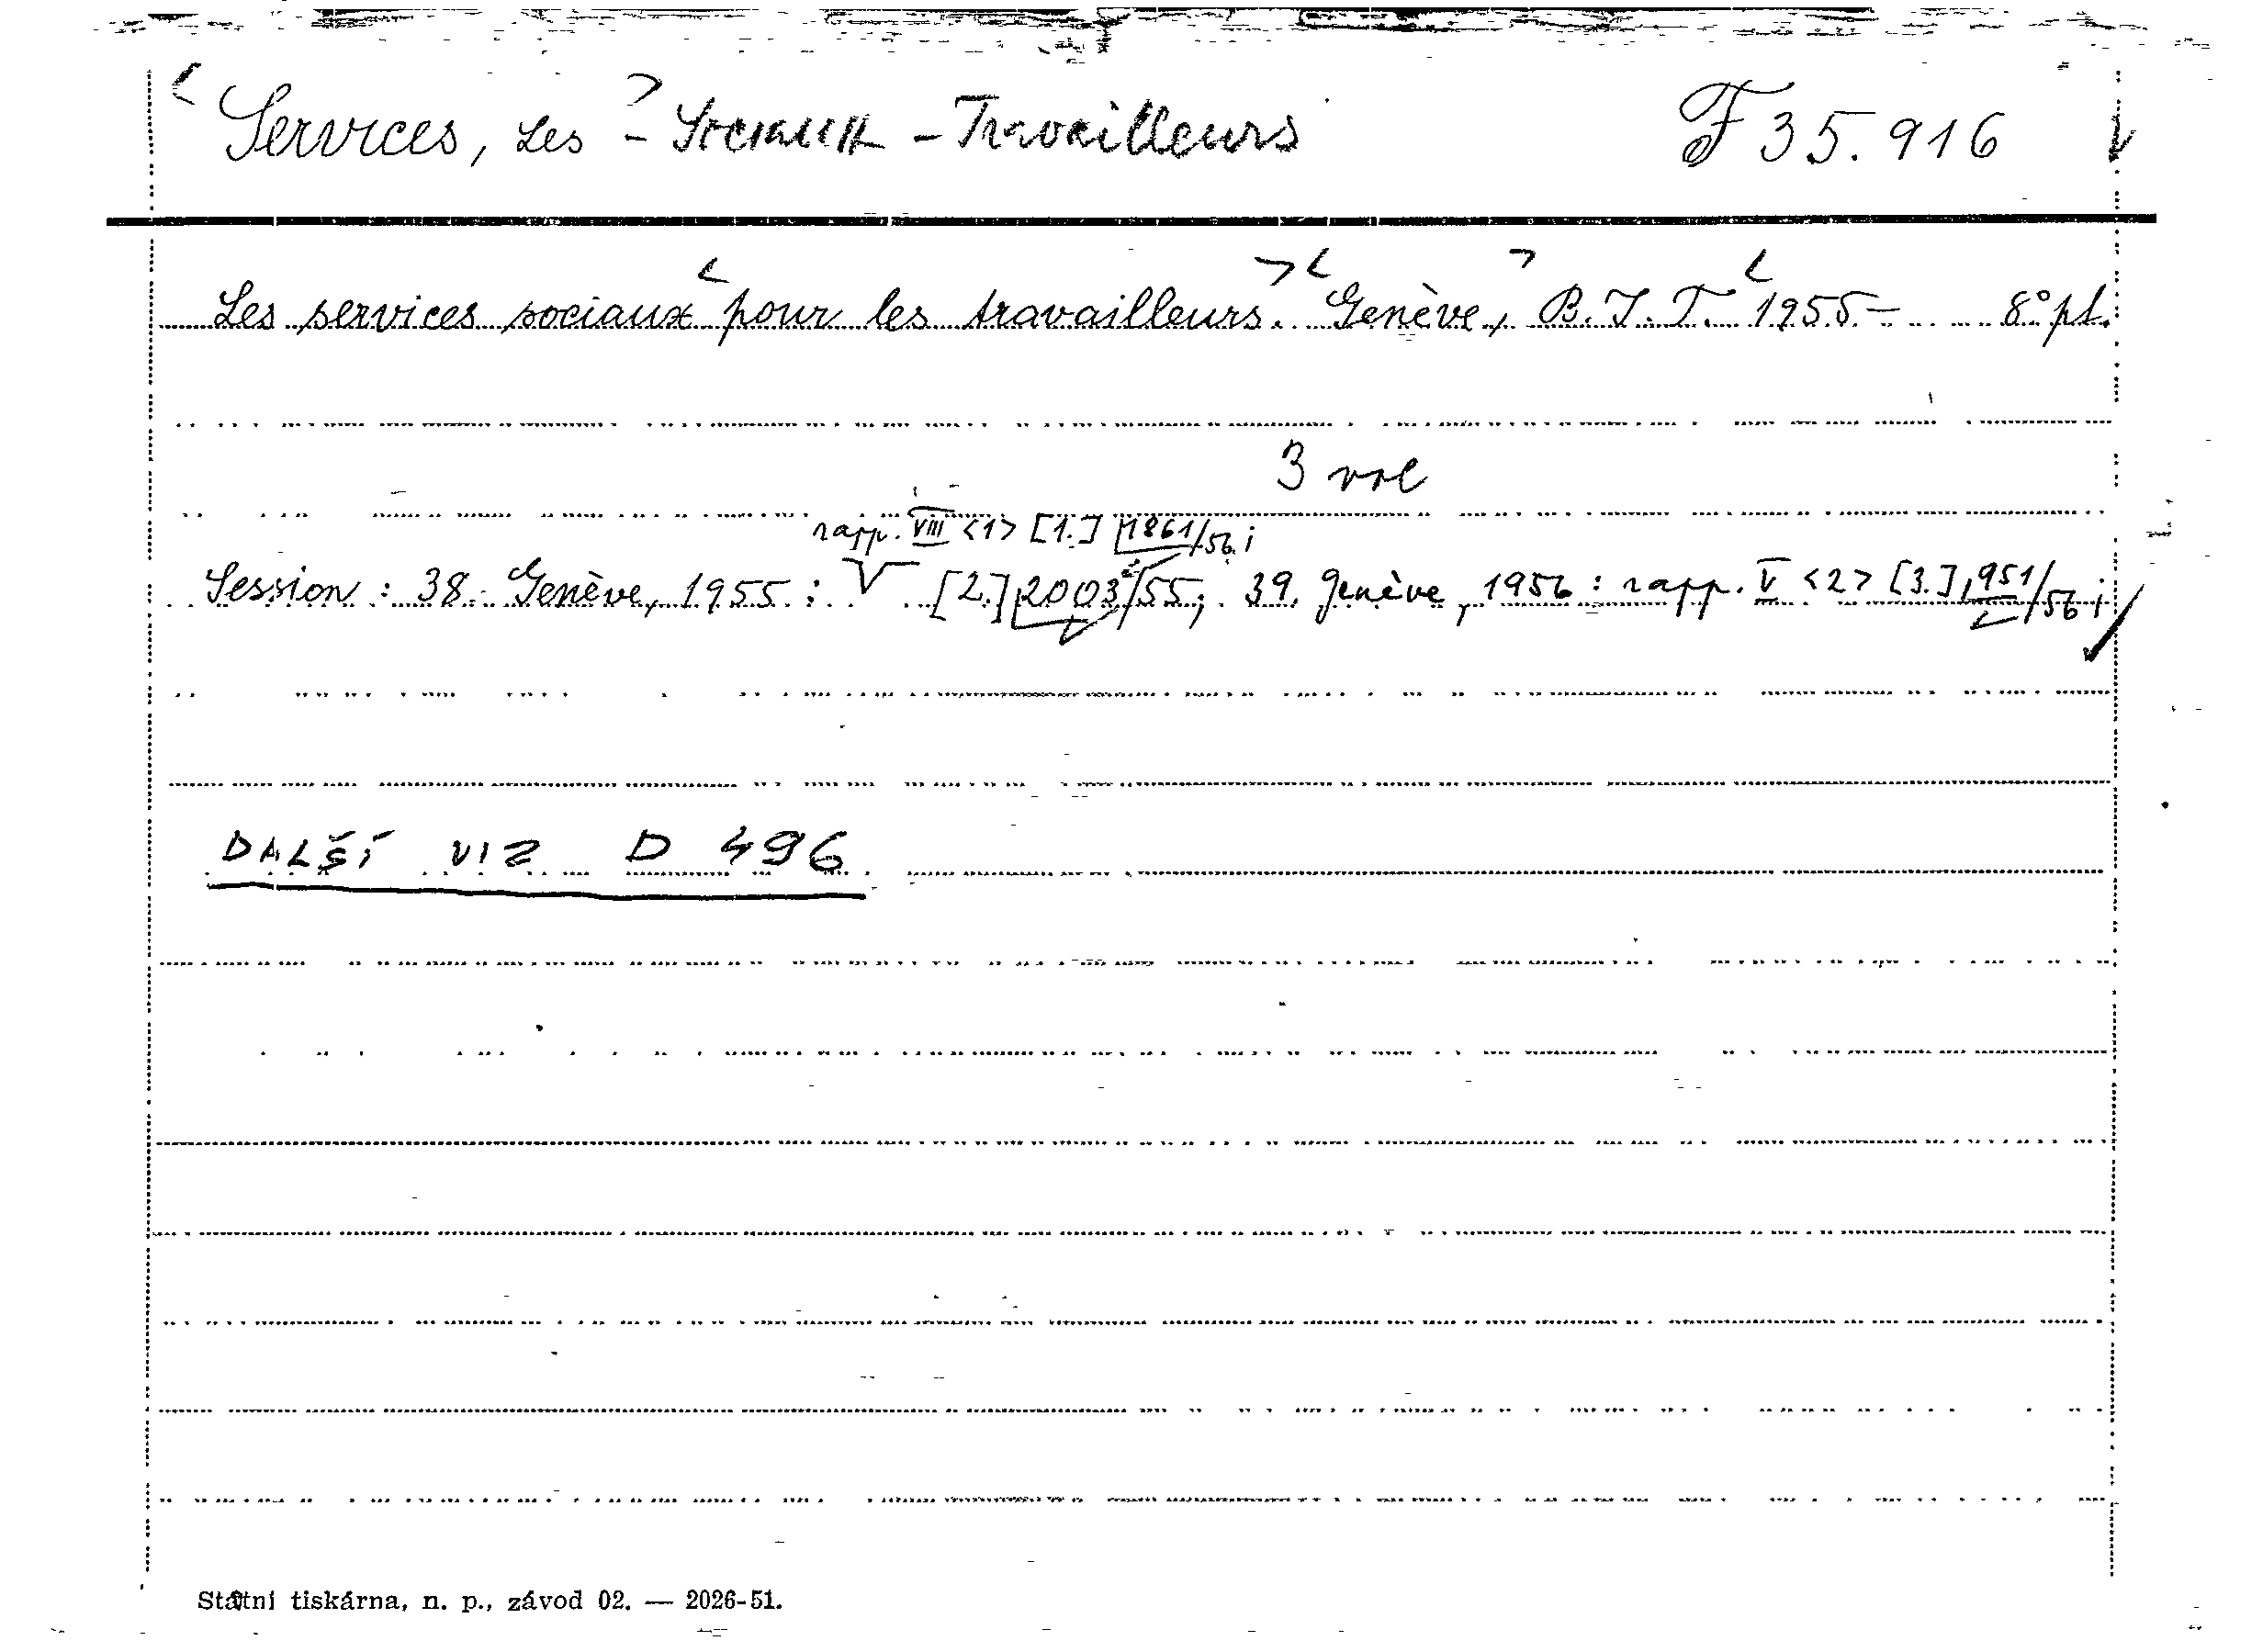 <Services, Les> - Sociaux - Travailleurs F 35.916
Les services sociaux <pour les travailleurs.> <Genève, B.I.T.> <1955.- 8° pl.
3 vol
rapp. VIII <1> [1.] 1861/56;
Session: 38. Genève, 1955: V [2.] 2003/55; 39. Genève, 1956: rapp. V <2> [3.] 951/56;
DALŠÍ VIZ D 496
Státní tiskárna, n. p., závod 02. — 2026-51.